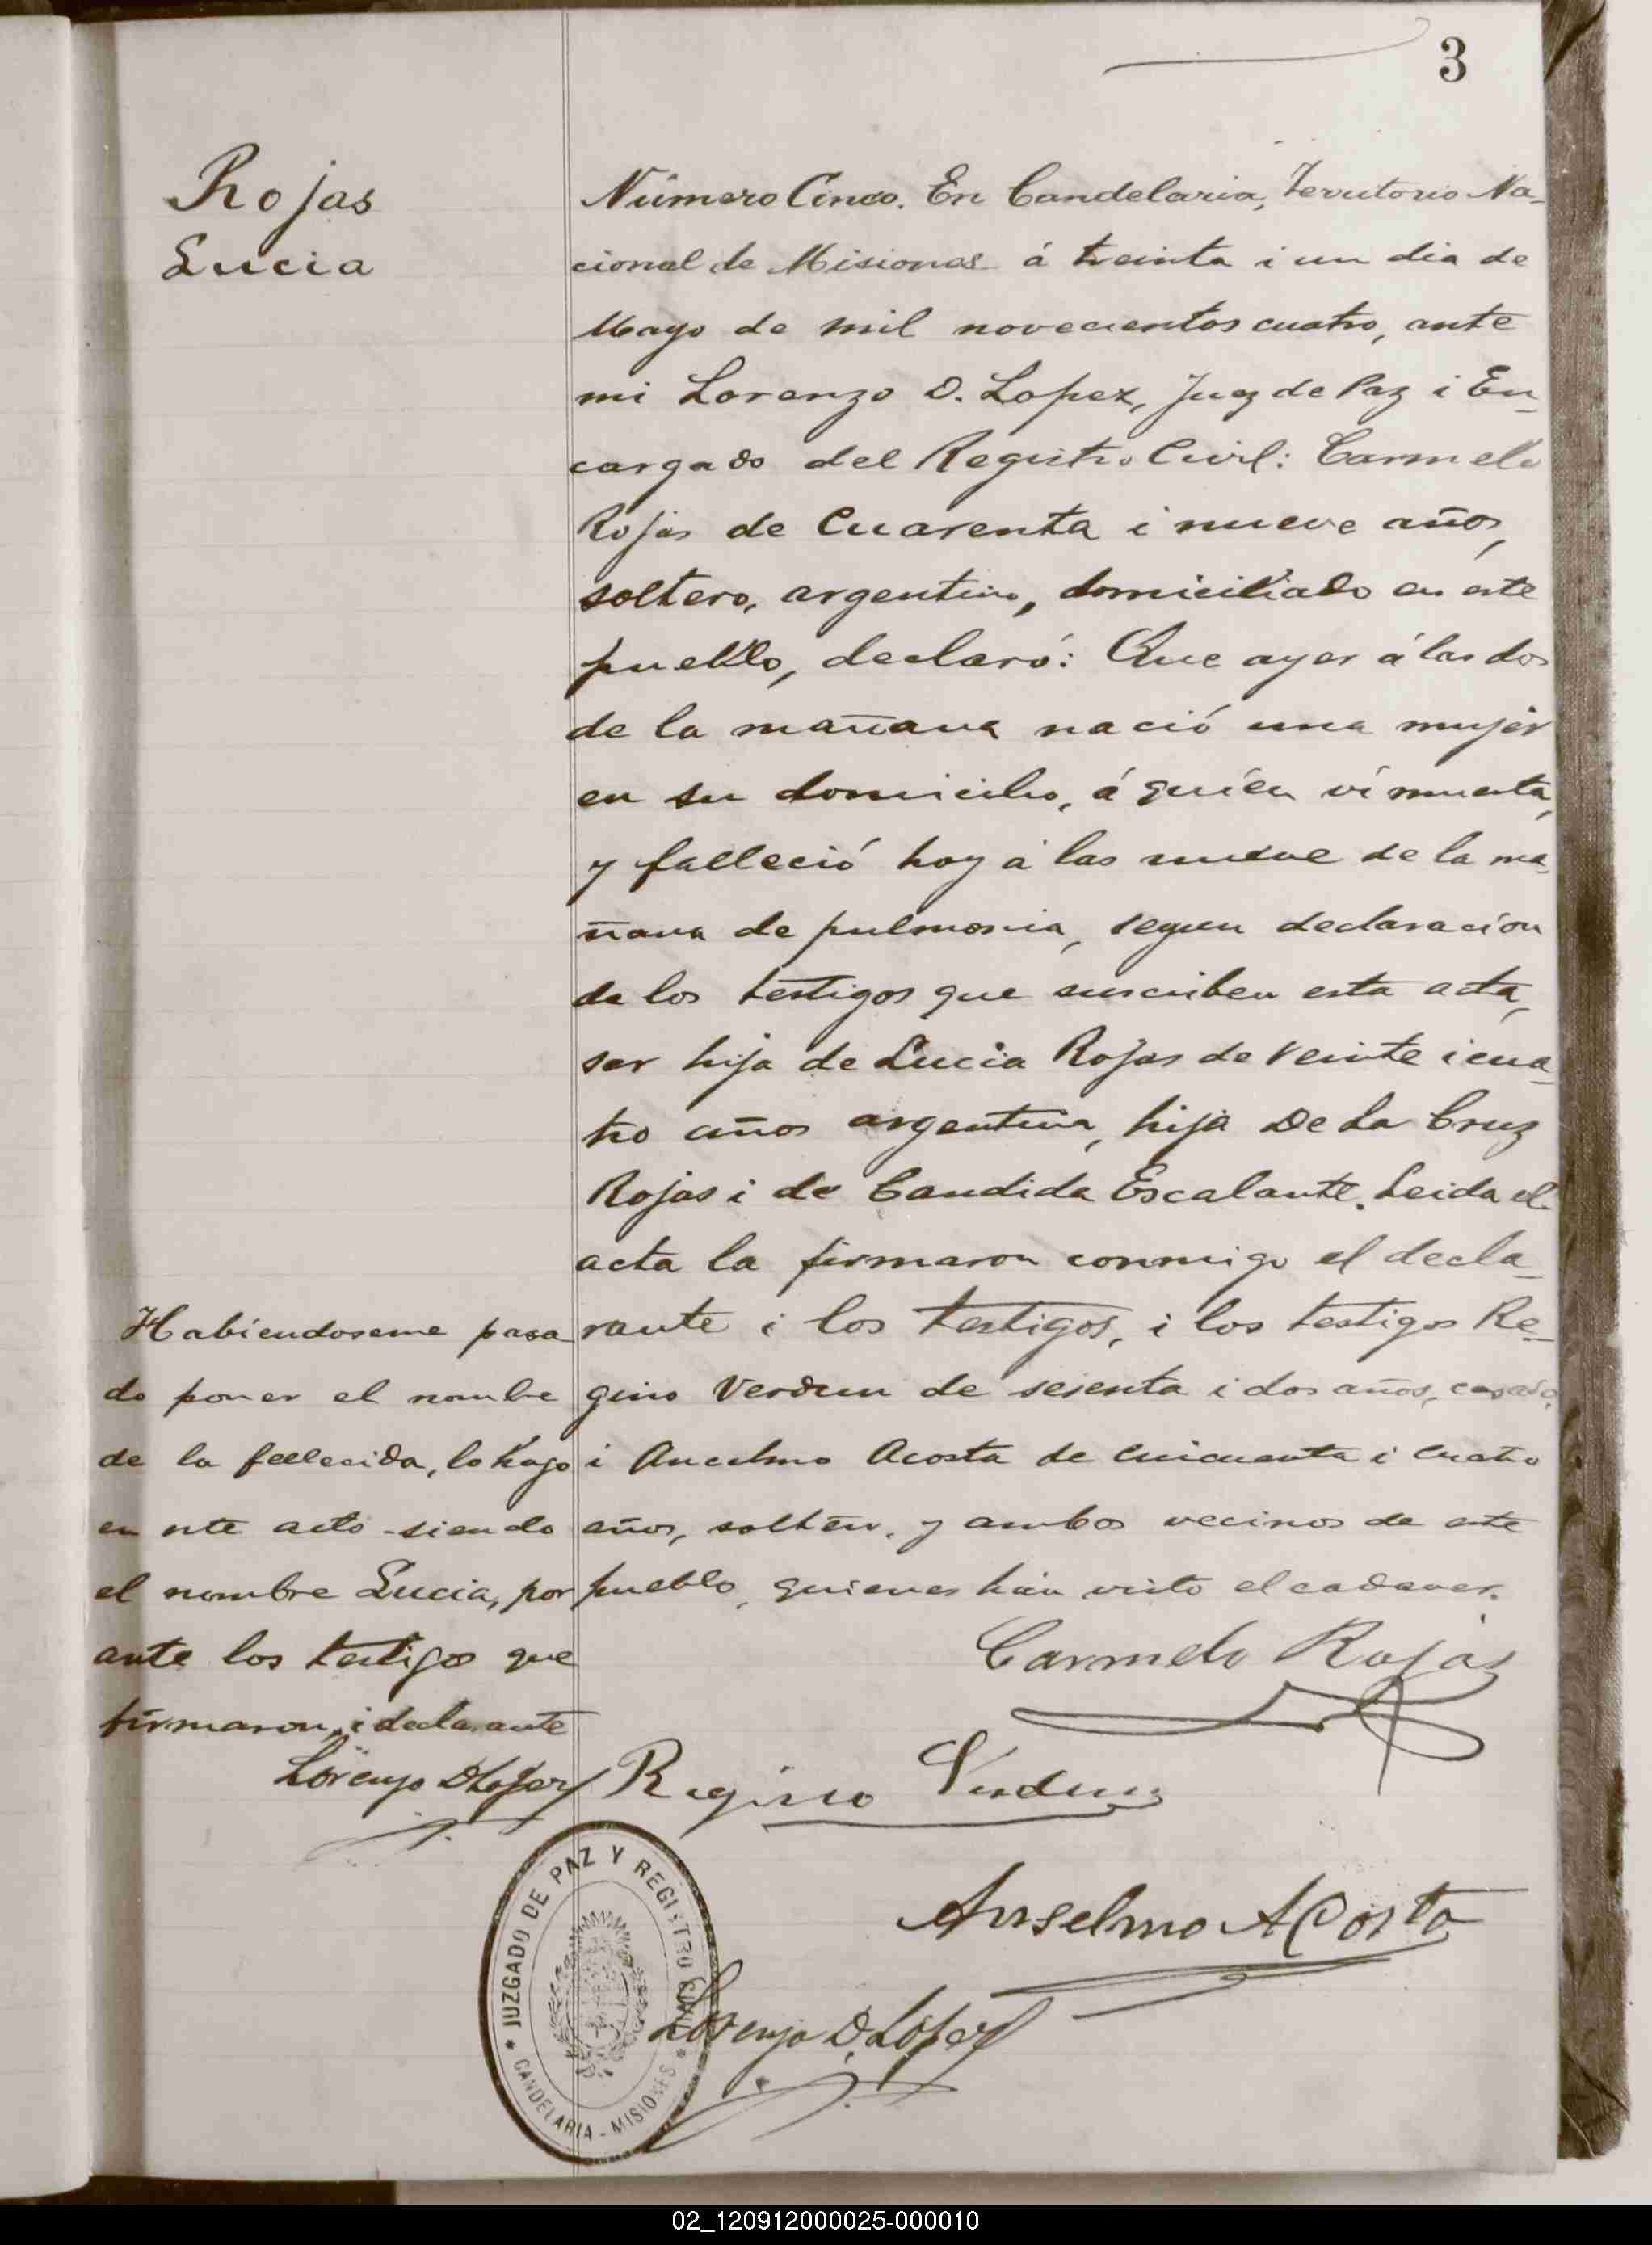 3
Rojas
Lucia
Número Cinco. En Candelaria, Territorio Na-
cional de Misiones á treinta i un dia de
Mayo de mil novecientos cuatro, ante
mi Lorenzo D. Lopez, Juez de Paz i En-
cargado del Registro Civil: Carmelo
Rojas de Cuarenta i nueve años,
soltero, argentino, domiciliado en este
pueblo, declaró: Que ayer á las dos
de la mañana nació una mujer
en su domicilio, á quién ví muerta,
y falleció hoy á las nueve de la ma-
ñana de pulmonia, segun declaración
de los testigos que suscriben esta acta,
ser hija de Lucia Rojas de veinte i cua-
tro años argentina, hija De La Cruz
Rojas i de Candida Escalante. Leida el
acta la firmaron conmigo el decla-
rante i los testigos, i los testigos Re-
gino Verdun de sesenta i dos años, casado,
i Anselmo Acosta de cincuenta i cuatro
años, soltero, y ambos vecinos de este
pueblo, quienes han visto el cadaver.
Habiendoseme pasa
do poner el nombre
de la fellecida, lo hago
en este acto - siendo
el nombre Lucia, por
ante los testigos que
firmaron, i declarante
Lorenzo D Lopez
Carmelo Rojas
Regino Verdun
Anselmo Acosta
Lorenzo D. Lopez
* JUZGADO DE PAZ Y REGISTRO CIVIL *
CANDELARIA - MISIONES
02_120912000025-000010